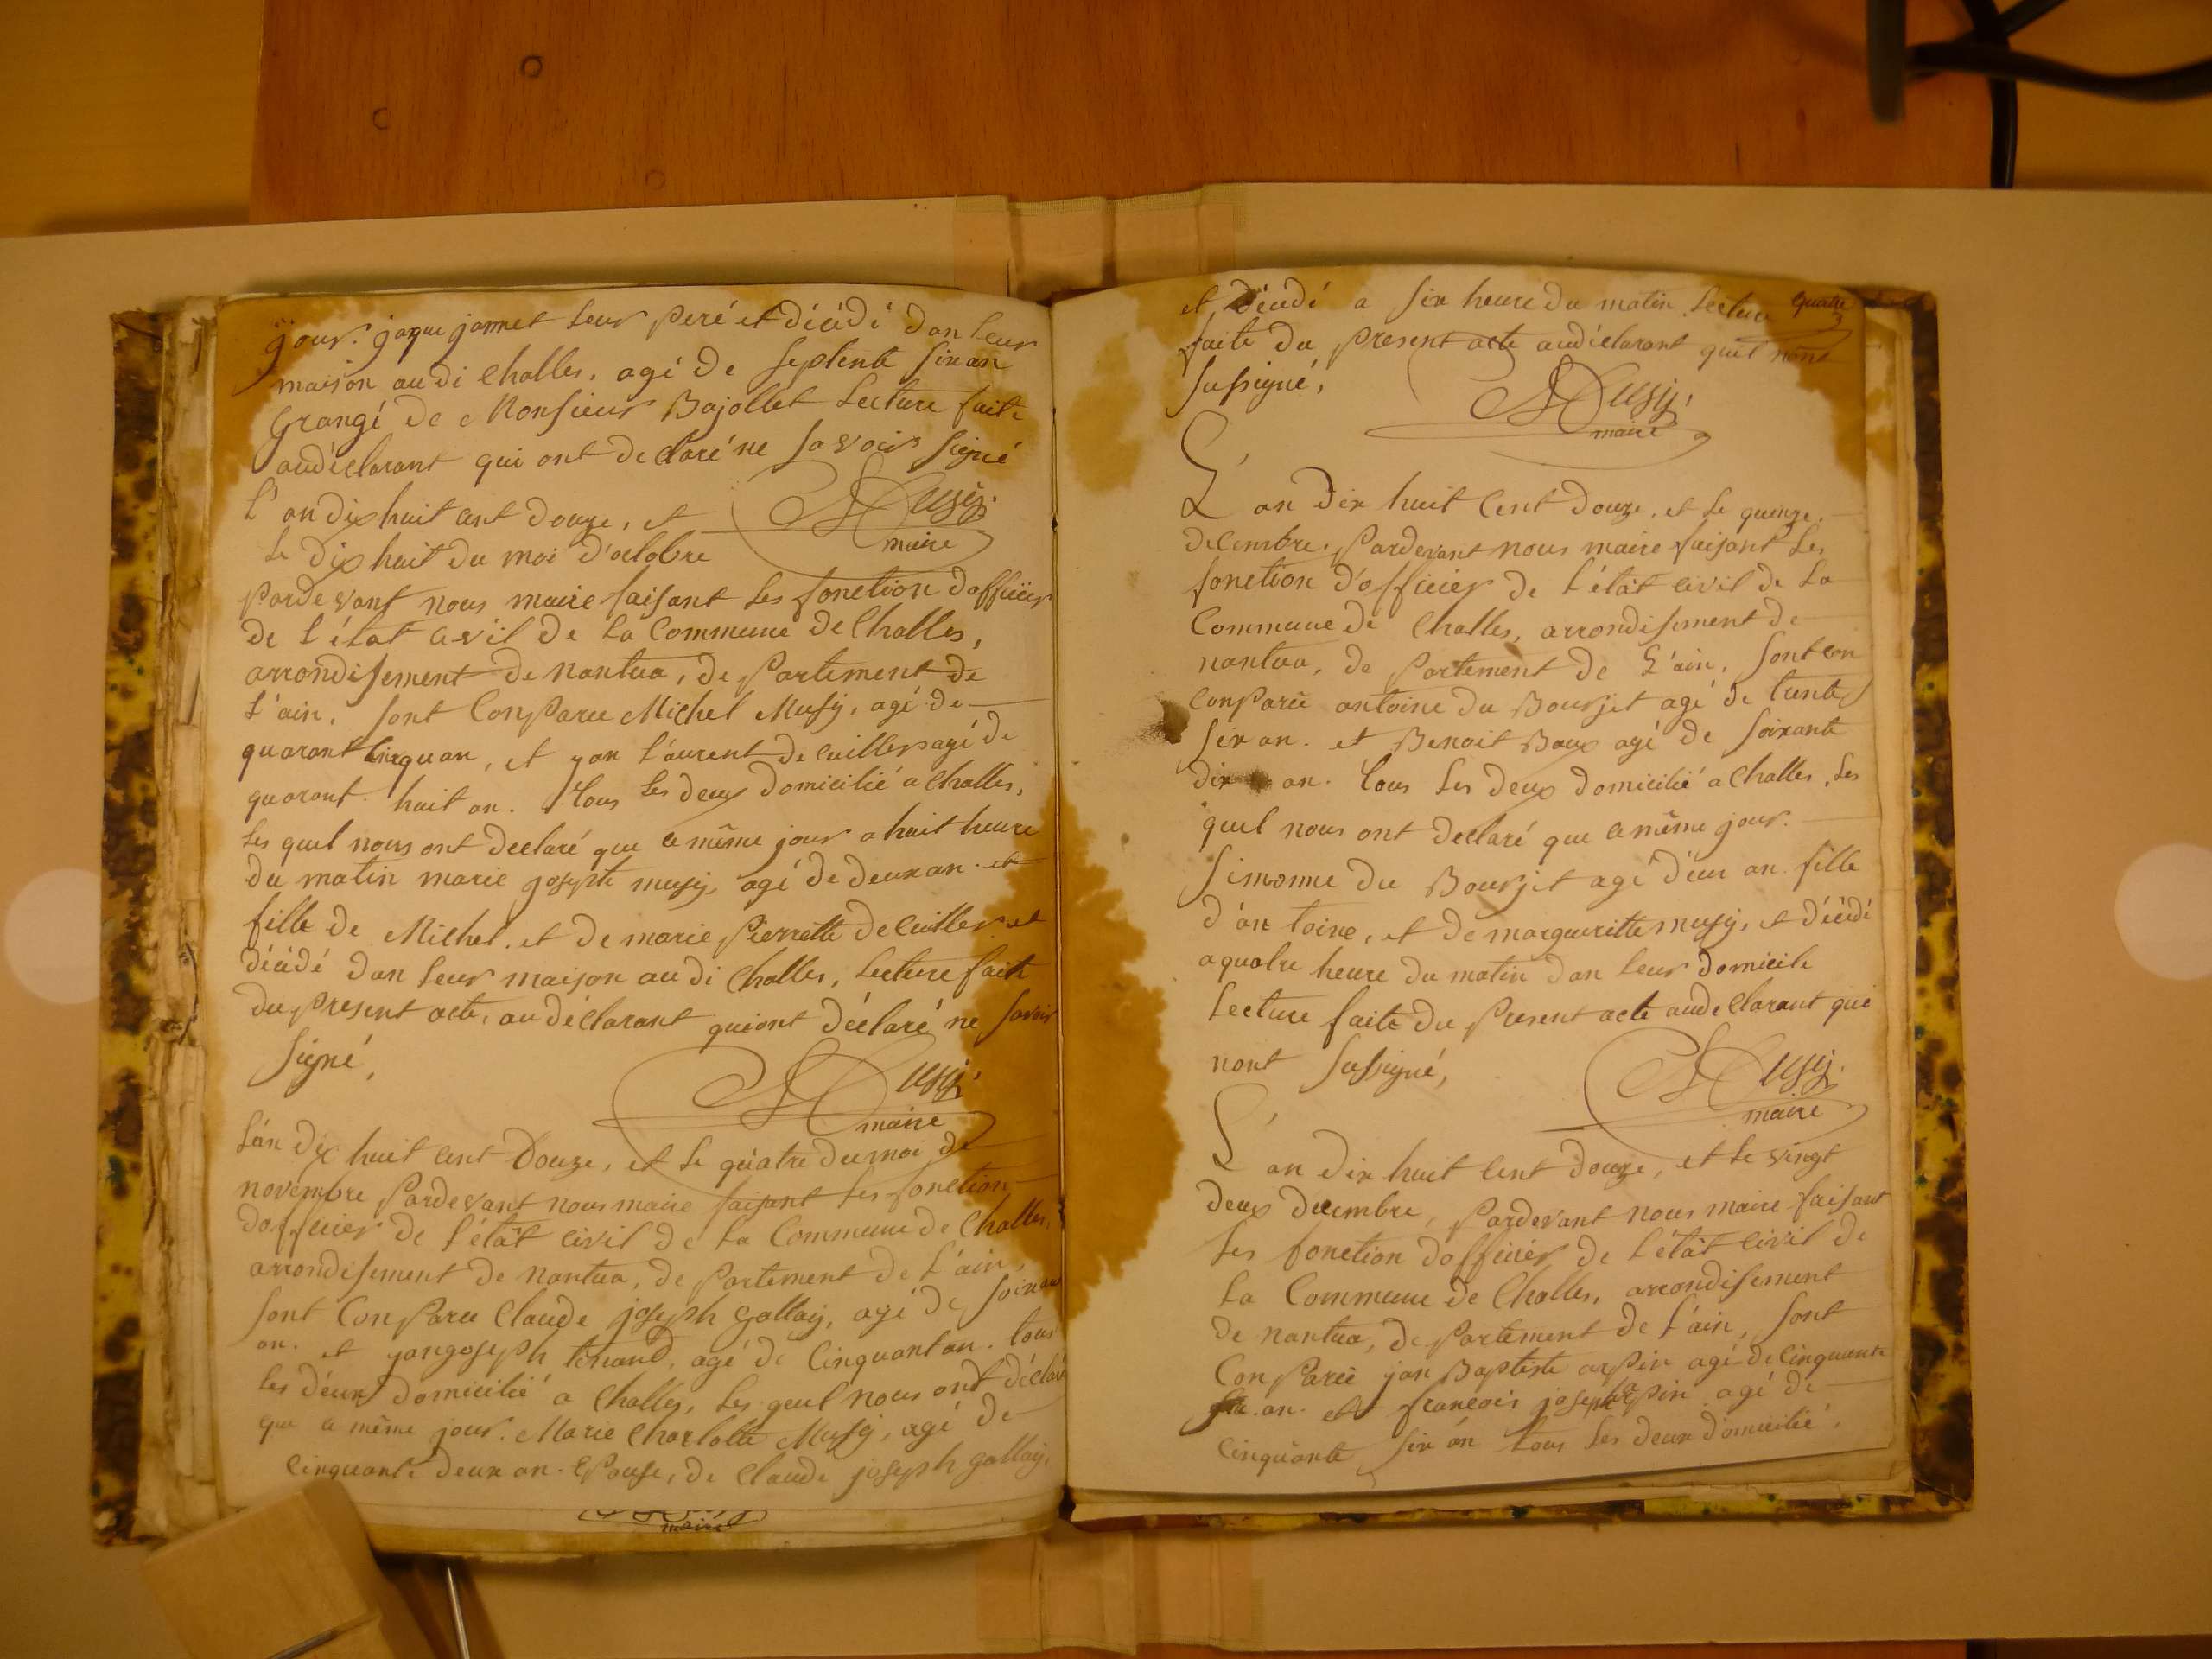 jour. jaque jannet leur peré et décidé dan leur
maison audi Challes, agé de septente sixan
Grangé de Monsieur Bajollet Lecture faite
audéclarant qui ont declaré ne savoir signé
L'an dix huit cent douze, et
Le dix huit du moi d'octobre
Musÿ.
maire
Pardevant nous maire faisant les fonction dofficier
de l'état civil de la Commune de Challes,
arrondisement de nantua, de partement de
L'ain, sont Conparu Michel Musÿ, agé de
quarant cinquan, et yan laurent decuiller agé de
quarant huit an. Tous les deux domicilié a Challes,
les quel nous ont declaré que ce même jour a huit heure
du matin marie joseph musÿ, agé de deux an. et
fille de Michel. et de marie pierrette decuiller et
décidé dan leur maison au di Challes, Lecture faite
du present acte, au déclarant qui ont déclaré ne savoir
signé,
Musÿ.
maire
L'an dix huit cent Douze, et le quatre du moi de
novembre pardevant nous maire faisant les fonction
dofficier de l'état civil de la Commune de Challes,
arrondisement de nantua, de partement de l'ain,
sont Conparu Claude joseph gallaÿ, agé de soixant
an. et yanjoseph agé de Cinquantan. tous
les déux domicilié a Challes, les quel nous ont déclaré
que ce même jour. Marie Charlotte Musÿ, agé de
Cinquante deux an. Epouse, de Claude joseph gallaÿ,
maire
et décidé a six heure du matin Lecture
quatre
faite du present acte audéclarant quil nont
sussigné,
Musÿ.
maire
L'an dix huit Cent douze, et le quinze.
decembre, Pardevant nous maire faisant les
fonction d'officier de l'état civil de la
Commune de Challes, arrondisement de
nantua, de partement de L'ain, sont
Conparu antoine du Bourjet agé de trente
six an. et Benoit Baux agé de soixante
dix an. tous les deux domicilié a Challes, les
quel nous ont declaré que ce même jour.
Simonne du Bourjet agé d'eux an. fille
d'an toine, et de margueritte musÿ, et décidé
a quatre heure du matin dan leur domicile
Lecture faite du present acte audeclarant qui
nont sussigné,
Musÿ.
maire
L'an dix huit cent douze, et le vingt
deux decembre, pardevant nous maire faisant
les fonction dofficier de l'état civil de
la Commune de Challes, arrondisement
de nantua, de partement de l'ain, sont
Conparu jan Baptiste arpin agé de cinquante
an. et francois joseph arpin agé de
cinquante six an tous les deux domicilié.